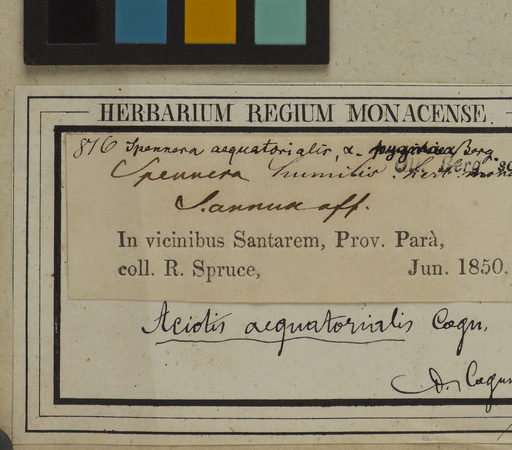 HERBARIUM REGIUM MONACENSE.
876 Spennera aequatorialis, α. pygmaea Berg.
Spennera humilis
S. annua aff.
In vicinibus Santarem, Prov. Parà,
coll. R. Spruce, Jun. 1850.
Aciotis aequatorialis Cogn.
A. Cogn